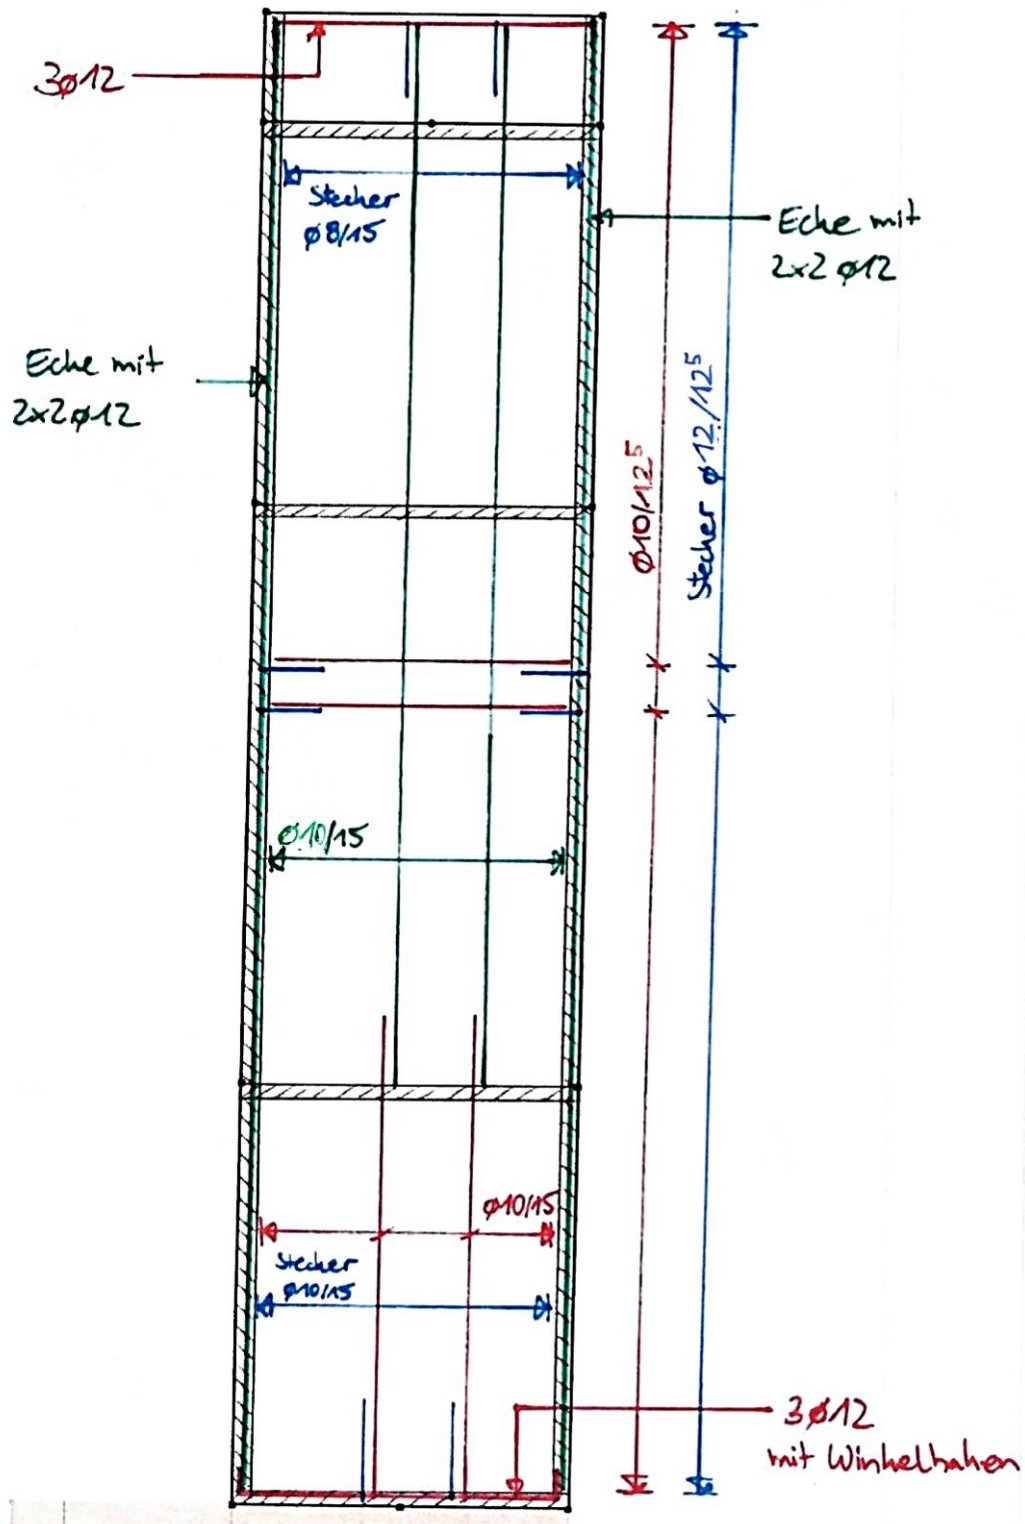 3ø12
Stecher
ø8/15
Eche mit
2x2 ø12
Eche mit
2x2ø12
Ø10/12⁵
Stecher ø12/12⁵
Ø10/15
ø10/15
Stecher
ø10/15
3Ø12
mit Winkelhaken